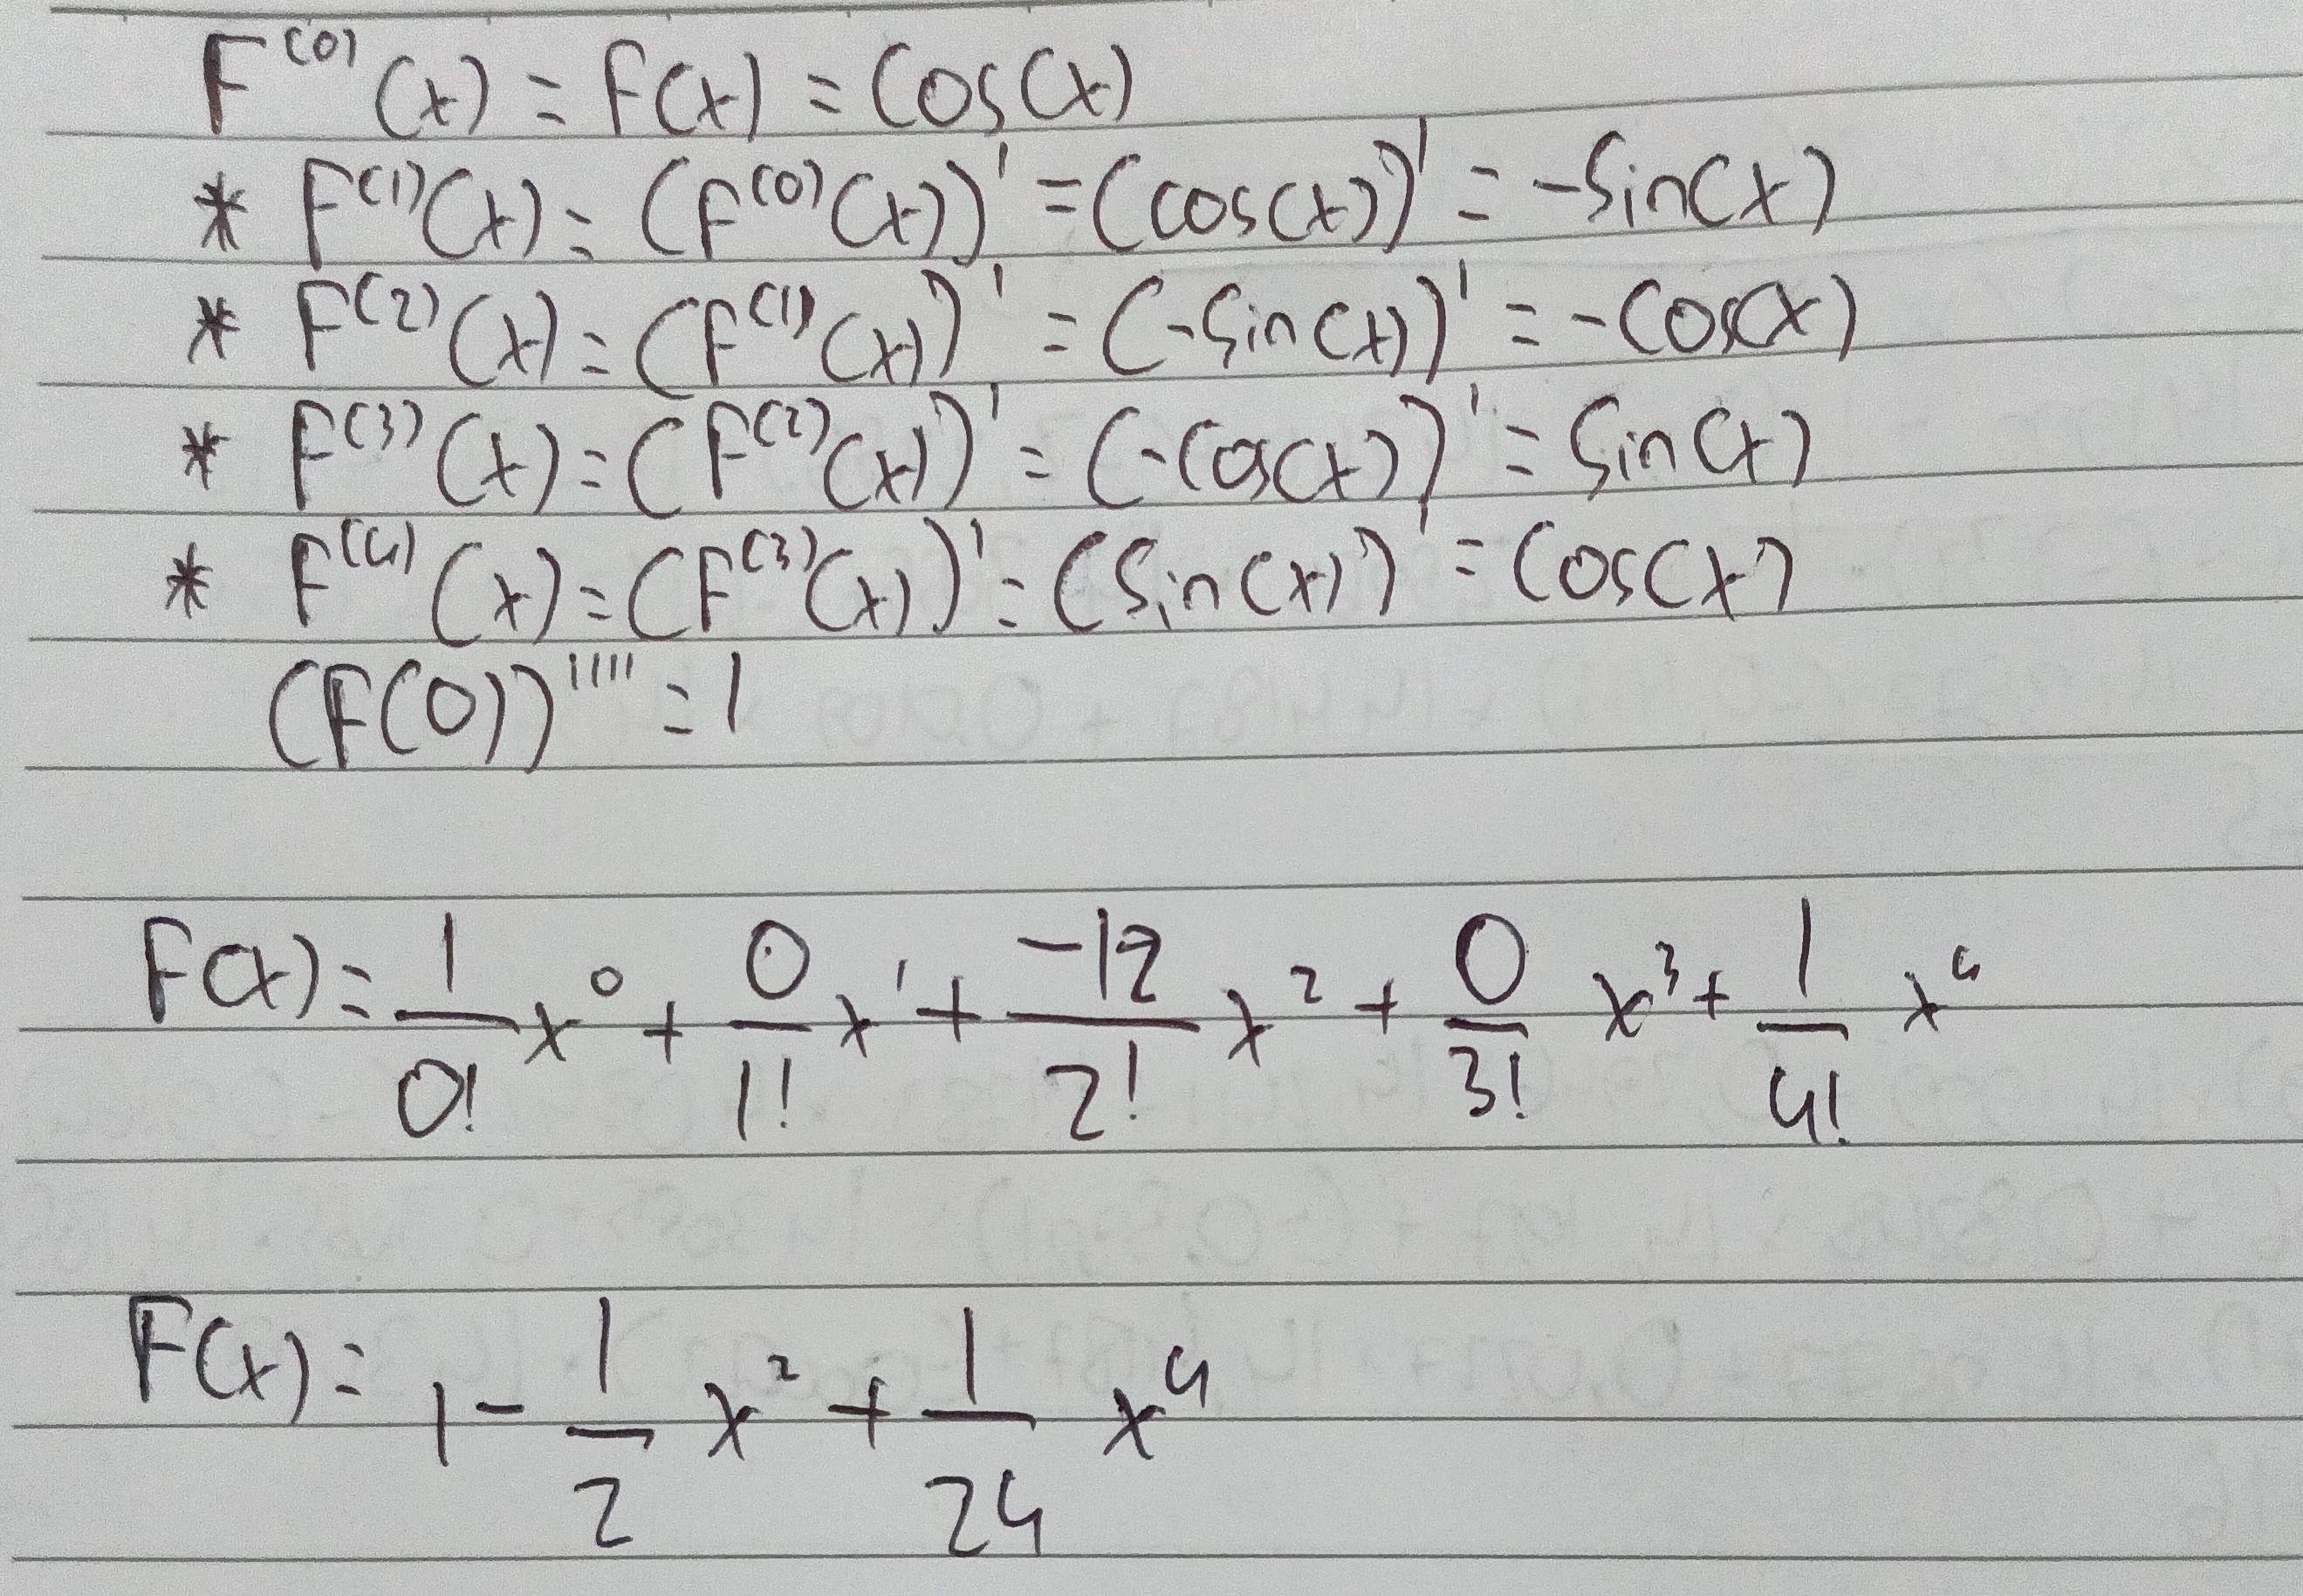 F^(0)(x) = F(x) = Cos(x)
* F^(1)(x) = (F^(0)(x))' = (cos(x))' = -Sin(x)
* F^(2)(x) = (F^(1)(x))' = (-Sin(x))' = -Cos(x)
* F^(3)(x) = (F^(2)(x))' = (-Cos(x))' = Sin(x)
* F^(4)(x) = (F^(3)(x))' = (Sin(x))' = Cos(x)
(F(0))'''' = 1
F(x) = 1/0! x^0 + 0/1! x^1 + -12/2! x^2 + 0/3! x^3 + 1/4! x^4
F(x) = 1 - 1/2 x^2 + 1/24 x^4